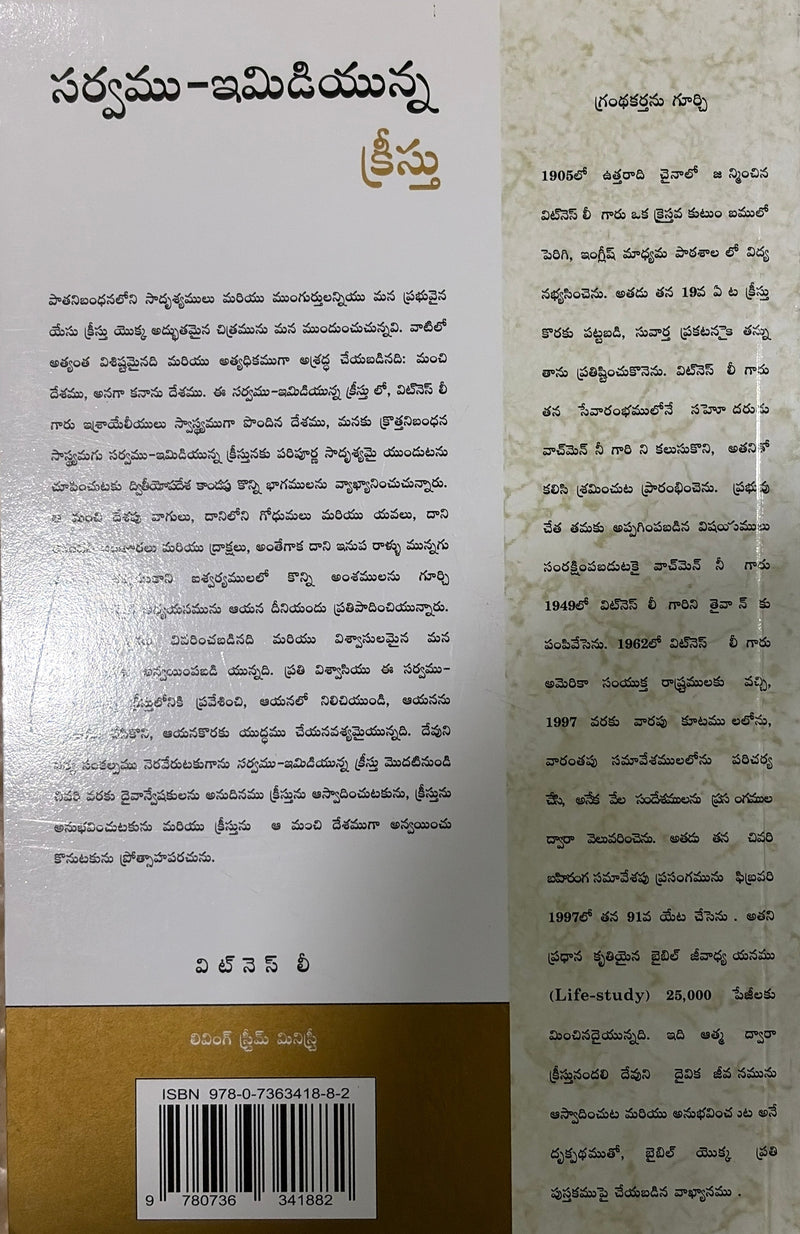 సర్వము-ఇమిడియున్న
క్రీస్తు
పాతనిబంధనలోని సాదృశ్యములు మరియు ముంగుర్తులన్నియు మన ప్రభువైన
యేసు క్రీస్తు యొక్క అద్భుతమైన చిత్రమును మన ముందుంచుచున్నవి. వాటిలో
అత్యంత విశిష్టమైనది మరియు అత్యధికముగా అశ్రద్ధ చేయబడినది: మంచి
దేశము, అనగా కనాను దేశము. ఈ సర్వము-ఇమిడియున్న క్రీస్తు లో, విట్‌నెస్ లీ
గారు ఇశ్రాయేలీయులు స్వాస్థ్యముగా పొందిన దేశము, మనకు క్రొత్తనిబంధన
సాస్థ్యమగు సర్వము-ఇమిడియున్న క్రీస్తునకు పరిపూర్ణ సాదృశ్యమై యుందుటను
చూపించుటకు ద్వితీయోపదేశ కాండపు కొన్ని భాగములను వ్యాఖ్యానించుచున్నారు.
ఆ మంచి దేశపు వాగులు, దానిలోని గోధుమలు మరియు యవలు, దాని
మరియు ద్రాక్షలు, అంతేగాక దాని ఇనుప రాళ్ళు మున్నగు
ఐశ్వర్యములలో కొన్ని అంశములను గూర్చి
ఆయన దీనియందు ప్రతిపాదించియున్నారు.
వివరించబడినది మరియు విశ్వాసులమైన మన
అన్వయింపబడి యున్నది. ప్రతి విశ్వాసియు ఈ సర్వము-
క్రీస్తులోనికి ప్రవేశించి, ఆయనలో నిలిచియుండి, ఆయనను
ఆయనకొరకు యుద్ధము చేయనవశ్యమైయున్నది. దేవుని
సంకల్పము నెరవేరుటకుగాను సర్వము-ఇమిడియున్న క్రీస్తు మొదటినుండి
చివరి వరకు దైవాన్వేషకులను అనుదినము క్రీస్తును ఆస్వాదించుటకును, క్రీస్తును
అనుభవించుటకును మరియు క్రీస్తును ఆ మంచి దేశముగా అన్వయించు
కొనుటకును ప్రోత్సాహపరచును.
విట్‌నెస్ లీ
లివింగ్ స్ట్రీమ్ మినిస్ట్రీ
ISBN 978-0-7363418-8-2
9 780736 341882
గ్రంథకర్తను గూర్చి
1905లో ఉత్తరాది చైనాలో జ న్మించిన
విట్‌నెస్ లీ గారు ఒక క్రైస్తవ కుటుం బములో
పెరిగి, ఇంగ్లీష్ మాధ్యమ పాఠశాల లో విద్య
నభ్యసించెను. అతడు తన 19వ ఏ ట క్రీస్తు
కొరకు పట్టబడి, సువార్త ప్రకటనకై తన్ను
తాను ప్రతిష్టించుకొనెను. విట్‌నెస్ లీ గారు
తన సేవారంభములోనే సహో దరుడు
వాచ్‌మెన్ నీ గారి ని కలుసుకొని, అతనితో
కలిసి శ్రమించుట ప్రారంభించెను. ప్రభువు
చేత తమకు అప్పగింపబడిన విషయములు
సంరక్షింపబదుటకై వాచ్‌మెన్ నీ గారు
1949లో విట్‌నెస్ లీ గారిని తైవా న్ కు
పంపివేసెను. 1962లో విట్‌నెస్ లీ గారు
అమెరికా సంయుక్త రాష్ట్రములకు వచ్చి,
1997 వరకు వారపు కూటము లలోను,
వారాంతపు సమావేశములలోను పరిచర్య
చేసి, అనేక వేల సందేశములను ప్రస ంగముల
ద్వారా వెలువరించెను. అతడు తన చివరి
బహిరంగ సమావేశపు ప్రసంగమును ఫిబ్రవరి
1997లో తన 91వ యేట చేసెను . అతని
ప్రధాన కృతియైన బైబిల్ జీవాధ్య యనము
(Life-study) 25,000 పేజీలకు
మించినదైయున్నది. ఇది ఆత్మ ద్వారా
క్రీస్తునందలి దేవుని దైవిక జీవ నమును
ఆస్వాదించుట మరియు అనుభవించ ుట అనే
దృక్పథముతో, బైబిల్ యొక్క ప్రతి
పుస్తకముపై చేయబడిన వాఖ్యానము .